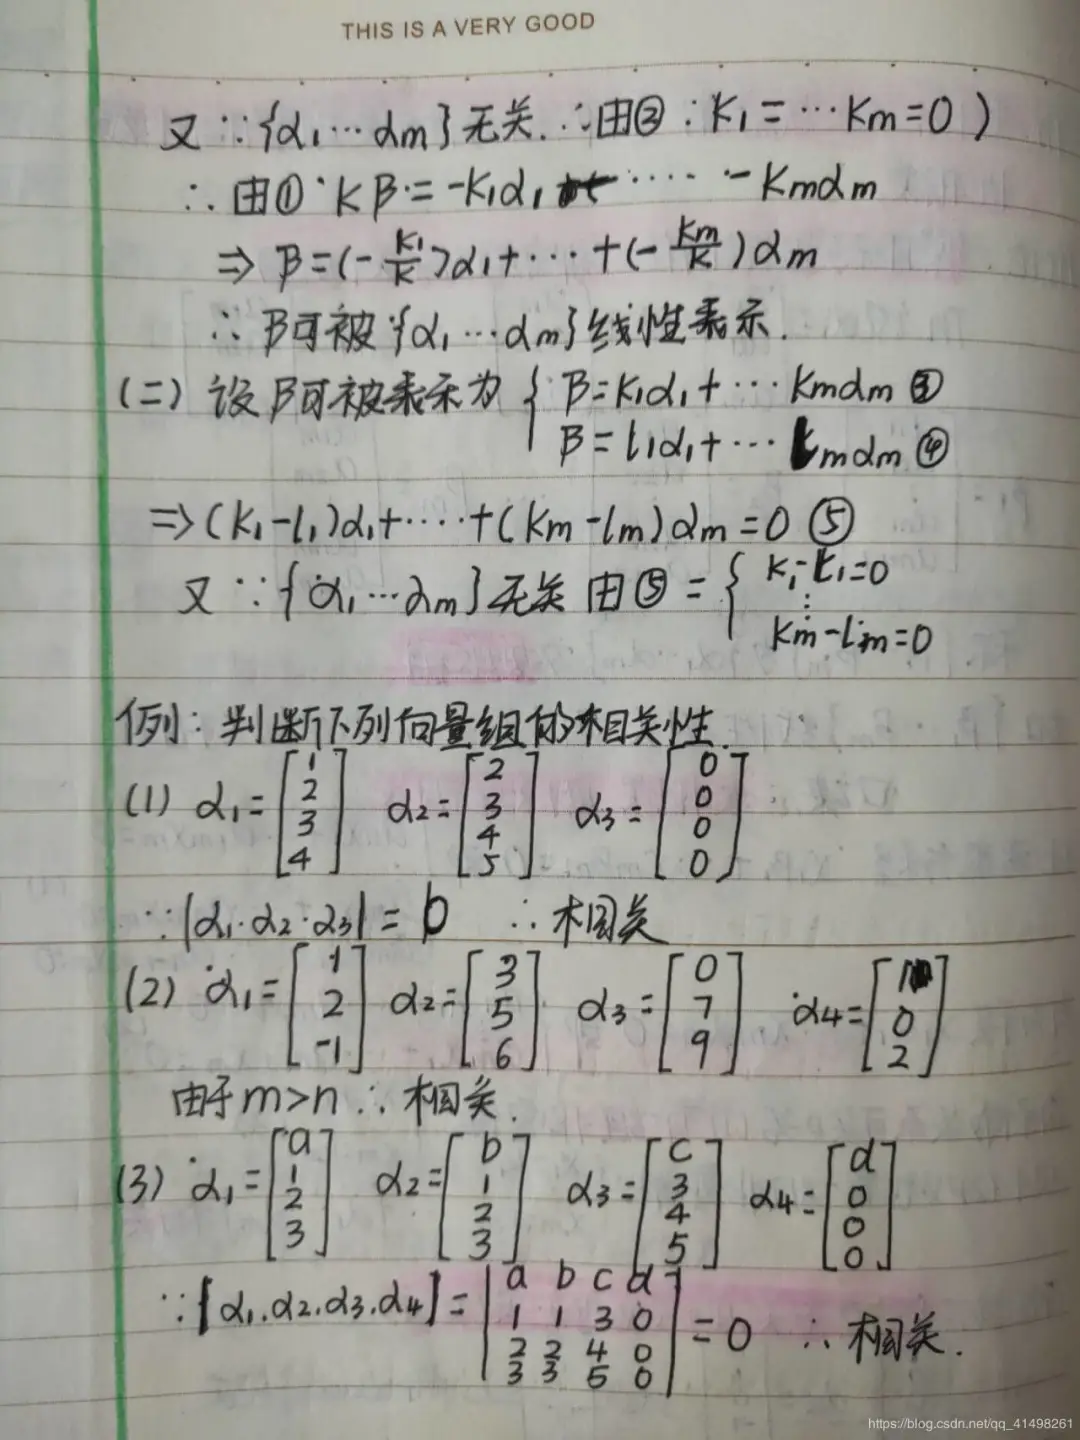 THIS IS A VERY GOOD
又∵{α₁…αm}无关.∴由②:K₁=…Km=0)
∴由①·Kβ=-K₁α₁ ····· -Kmαm
⇒ β=(-K₁/K)α₁+…+(-Km/K)αm
∴β可被{α₁…αm}线性表示.
(二) 设β可被表示为 { β=K₁α₁+…Kmαm ③
β=l₁α₁+…lmαm ④
⇒(K₁-l₁)α₁+····+(Km-lm)αm=0 ⑤
又∵{α₁…αm}无关 由⑤={ K₁-l₁=0
⋮
Km-lm=0
例:判断下列向量组的相关性.
(1) α₁=[1 2 3 4] α₂=[2 3 4 5] α₃=[0 0 0 0]
∵|α₁·α₂·α₃|=0 ∴相关
(2) α₁=[1 2 -1] α₂=[3 5 6] α₃=[0 7 9] α₄=[1 0 2]
由于m>n∴相关.
(3) α₁=[a 1 2 3] α₂=[b 1 2 3] α₃=[c 3 4 5] α₄=[d 0 0 0]
∵|α₁.α₂.α₃.α₄|=|a b c d
1 1 3 0
2 2 4 0
3 3 5 0|=0 ∴相关.
https://blog.csdn.net/qq_41498261